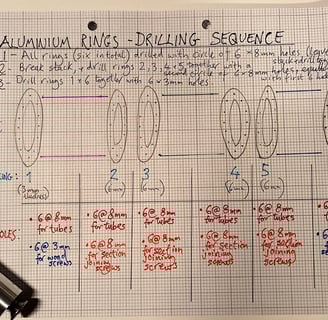 ALUMINIUM RINGS - DRILLING SEQUENCE
1 - All rings (six in total) drilled with circle of 6 × 8mm holes
2 Break stack, + drill rings 2, 3, 4 + 5 together with a
second circle of 6 × 8mm holes,
3 Drill rings 1 + 6 together with 6 × 3mm holes
1 2 3 4 5
• 6@ 8mm for tubes
• 6@ 3mm for wood screws
• 6@ 8mm for tubes
• 6@ 8mm for section joining screws
• 6@ 8mm for tubes
• 6@ 8mm for section joining screws
• 6@ 8mm for tubes
• 6@ 8mm for section joining screws
• 6@ 8mm for tubes
• 6@ 8mm for section joining screws